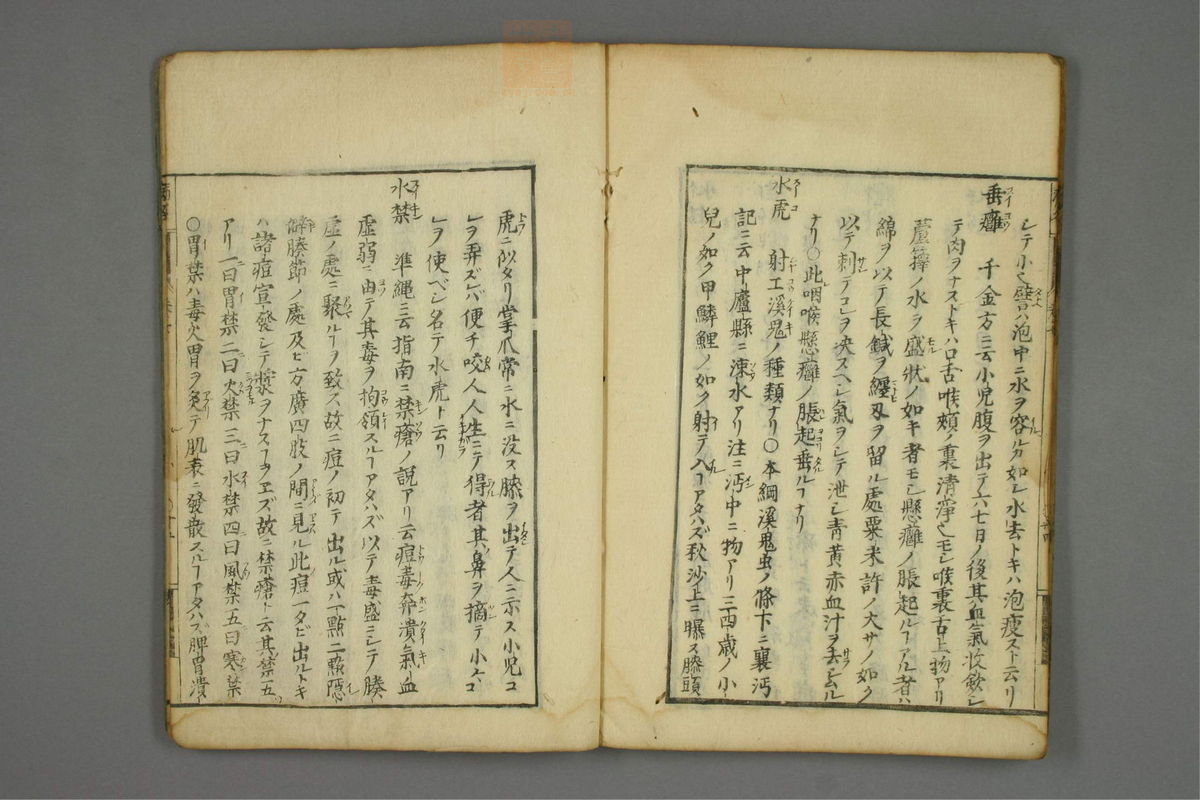 シテ小ク譬ハ泡中ニ水ヲ容ル分如シ水去トキハ泡瘦スト云リ
垂癰 千金方ニ云小兒腹ヲ出テ六七日ノ後其血氣收斂シ
テ肉ヲナストキハ口舌喉頰ノ裏清淨也モシ喉裏舌上物アリ
蘆籜ノ水ヲ盛狀ノ如キ者モシ懸癰ノ脹起ルヿアル者ハ
綿ヲ以テ長鍼ヲ纏刃ヲ留ル處粟米許ノ大サノ如ク
以テ刺テコレヲ决スヘシ氣ヲシテ泄シ青黃赤血汁ヲ去シムル
ナリ○此咽喉懸癰ノ脹起垂ルヿナリ
水虎 射工溪鬼ノ種類ナリ○本綱溪鬼虫ノ條下ニ襄沔
記ニ云中廬縣ニ涑水アリ注ニ沔中ニ物アリ三四歲ノ小
兒ノ如ク甲鱗鯉ノ如ク射テ入ヿアタハズ秋沙上ニ曝ス膝頭
虎ニ似タリ掌爪常ニ水ニ没ス膝ヲ出テ人ニ示ス小兒コ
レヲ弄ズレバ便チ咬人人生ニテ得者其鼻ヲ摘テ小々コ
レヲ使ベシ名テ水虎ト云リ
水禁 準繩ニ云指南ニ禁瘡ノ說アリ云痘毒奔潰氣血
虛弱ニ由テ其毒ヲ拘領スルヿアタハズ以テ毒盛ニシテ腠
虛ノ處ニ聚ルヿヲ致ス故ニ痘ノ初テ出ル或ハ一點二點隱
解腠節ノ處及ヒ方廣四肢ノ間ニ見ル此痘一タビ出ルトキ
ハ諸痘宣發シテ漿ヲナスヿヲヱズ故ニ禁瘡ト云其禁五
アリ一曰胃禁二曰火禁三曰水禁四曰風禁五曰寒禁
○胃禁ハ毒火胃ヲ灸テ肌表ニ發散スルヿアタハズ脾胃潰